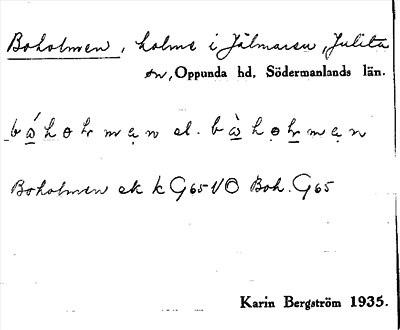 Boholmen, holme i Jälmaren, Julita
sn, Oppunda hd, Södermanlands län.
el.
Boholmen ek k G65 VO Boh. G65
Karin Bergström 1935.